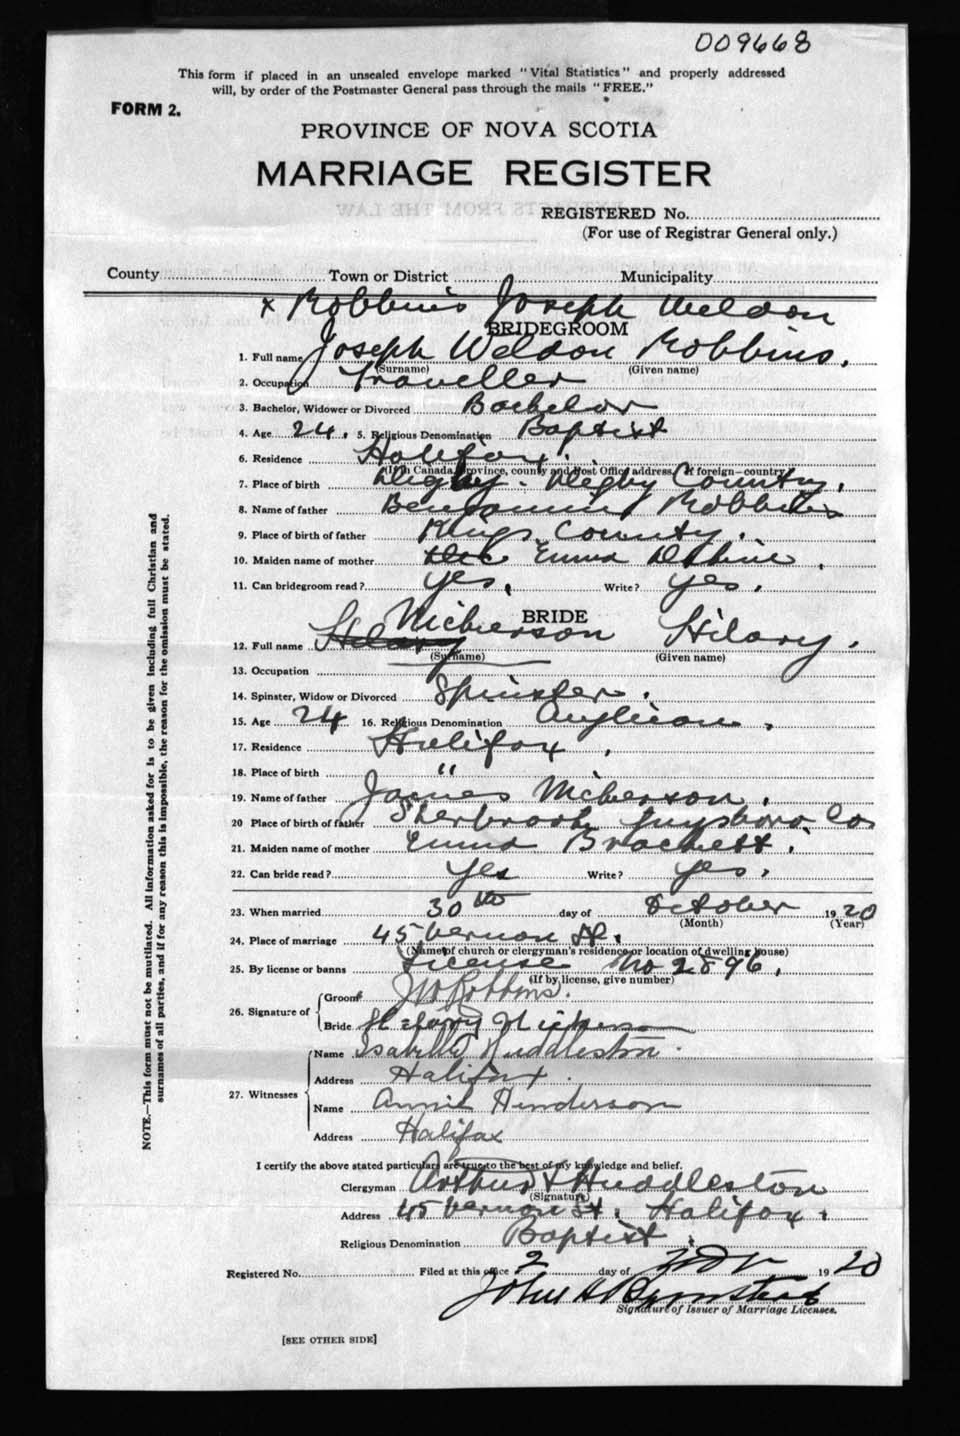 009668
This form if placed in an unsealed envelope marked "Vital Statistics" and properly addressed
will, by order of the Postmaster General pass through the mails "FREE."
FORM 2.
PROVINCE OF NOVA SCOTIA
MARRIAGE REGISTER
REGISTERED No.
(For use of Registrar General only.)
County Town or District Municipality
x Robbins Joseph Weldon
BRIDEGROOM
1. Full name Joseph Weldon Robbins.
(Surname) (Given name)
2. Occupation Traveller
3. Bachelor, Widower or Divorced Bachelor
4. Age 24. 5. Religious Denomination Baptist
6. Residence Halifax.
(If in Canada, province, county and Post Office address. If foreign—country
7. Place of birth Digby. Digby Country.
8. Name of father Benjamin Robbins
9. Place of birth of father Kings County.
10. Maiden name of mother Emma
11. Can bridegroom read? yes. Write? yes.
BRIDE
12. Full name Hilary Nickerson Hilary.
(Surname) (Given name)
13. Occupation
14. Spinster, Widow or Divorced Spinster.
15. Age 24 16. Religious Denomination Anglican.
17. Residence Halifax.
18. Place of birth "
19. Name of father James Nickerson.
20 Place of birth of father Sherbrook Guysboro. Co
21. Maiden name of mother Emma Brackett.
22. Can bride read? yes Write? yes.
23. When married 30th day of October 1920
(Month) (Year)
24. Place of marriage 45 Vernon St.
(Name of church or clergyman's residence or location of dwelling house)
25. By license or banns License No 2896.
(If by license, give number)
26. Signature of
Groom J W Robbins.
Bride Hilary Nickerson
27. Witnesses
Name Isabella Huddleston.
Address Halifax.
Name Annie Henderson
Address Halifax
I certify the above stated particulars are true to the best of my knowledge and belief.
Clergyman Arthur Huddleston
(Signature)
Address 45 Vernon St. Halifax.
Religious Denomination Baptist.
Registered No. Filed at this office 2 day of Nov 1920
John
Signature of Issuer of Marriage Licenses.
[SEE OTHER SIDE]
NOTE.—This form must not be mutilated. All information asked for is to be given including full Christian and
surnames of all parties, and if for any reason this is impossible, the reason for the omission must be stated.